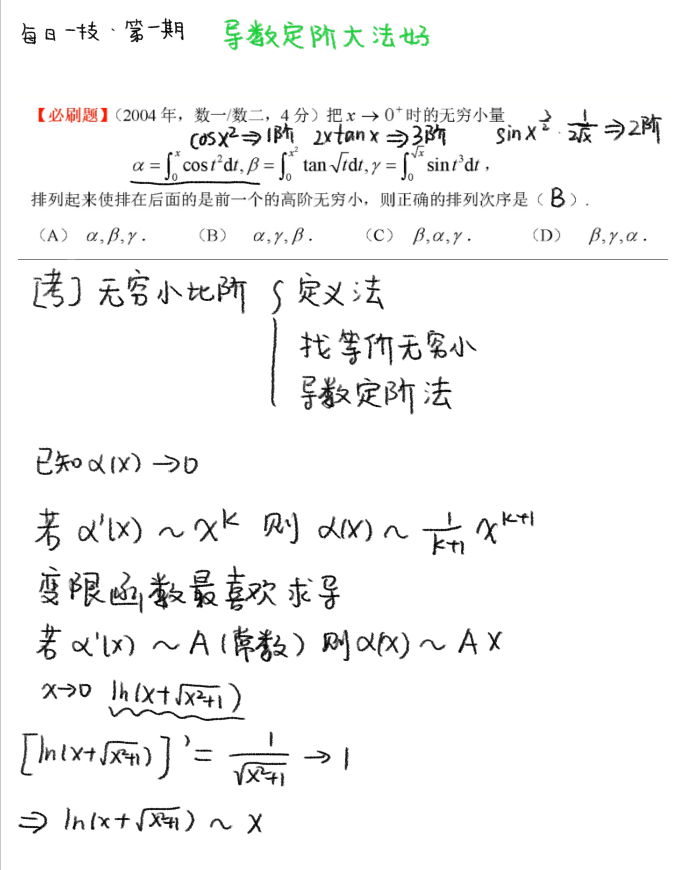 每日一技、第一期 导数定阶大法好
【必刷题】(2004 年，数一/数二，4 分) 把 x → 0⁺ 时的无穷小量
cosx² ⇒ 1阶 2xtanx ⇒ 3阶 sinx^(3/2) · 1/(2√x) ⇒ 2阶
α = ∫₀ˣ cos t² dt, β = ∫₀^(x²) tan √t dt, γ = ∫₀^(√x) sin t³ dt，
排列起来使排在后面的是前一个的高阶无穷小，则正确的排列次序是（ B ）.
（A） α, β, γ . （B） α, γ, β . （C） β, α, γ . （D） β, γ, α .
[考] 无穷小比阶 { 定义法
找等价无穷小
导数定阶法
已知 α(x) → 0
若 α'(x) ~ x^k 则 α(x) ~ 1/(k+1) x^(k+1)
变限函数最喜欢求导
若 α'(x) ~ A (常数) 则 α(x) ~ A x
x→0 ln(x+√(x²+1))
[ln(x+√(x²+1))]' = 1/√(x²+1) → 1
⇒ ln(x+√(x²+1)) ~ x